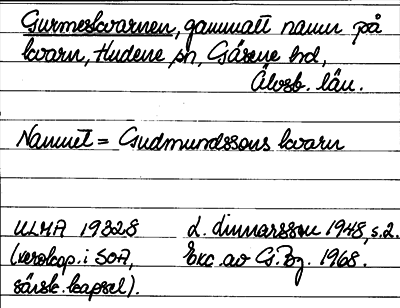 Gurmeskvarnen, gammalt namn på
kvarn, Hudene sn, Gäsene hd,
Älvsb. län.
Namnet = Gudmundssons kvarn
ULMA 19328 L. Linnarsson 1948, s.2.
(xerokop. i SOA, Exc av G. Bg. 1968.
särsk. kapsel).